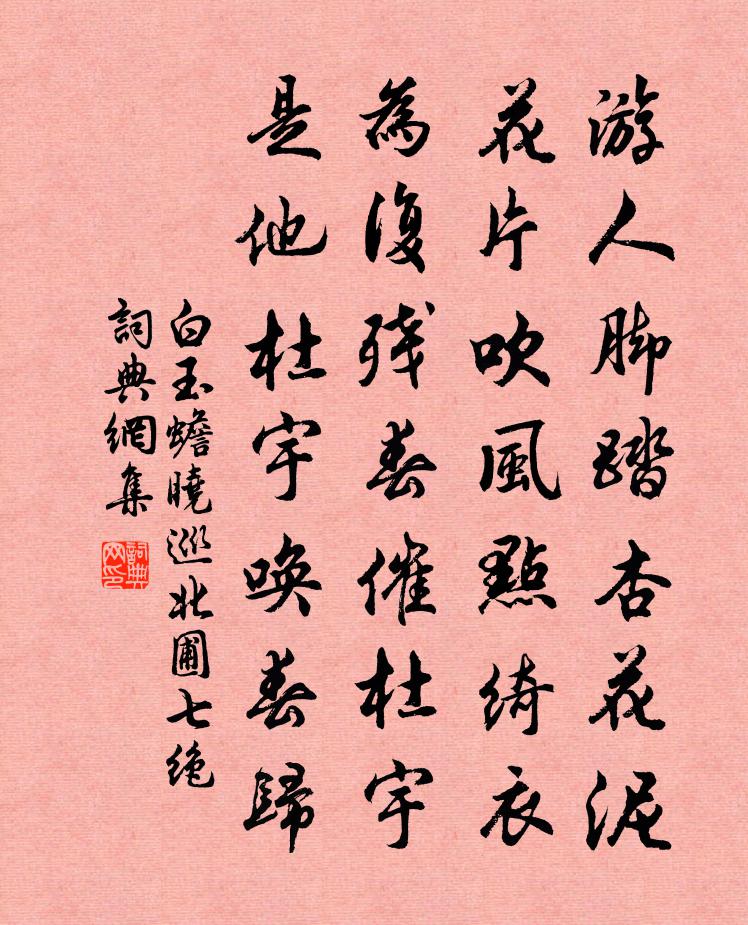 游人脚踏杏花泥
花片吹風點綺衣
為復残春催杜宇
是他杜宇唤春歸
白玉蟾曉巡北圃七绝
詞典網集
詞典
网印